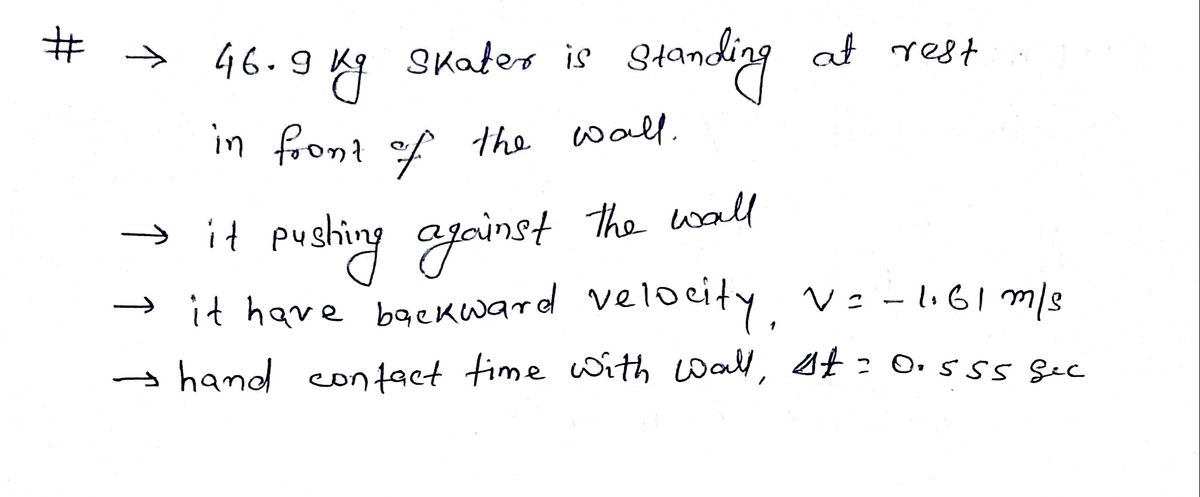 # → 46.9 kg skater is standing at rest
in front of the wall.
→ it pushing against the wall
→ it have backward velocity, v = -1.61 m/s
→ hand contact time with wall, Δt = 0.555 sec